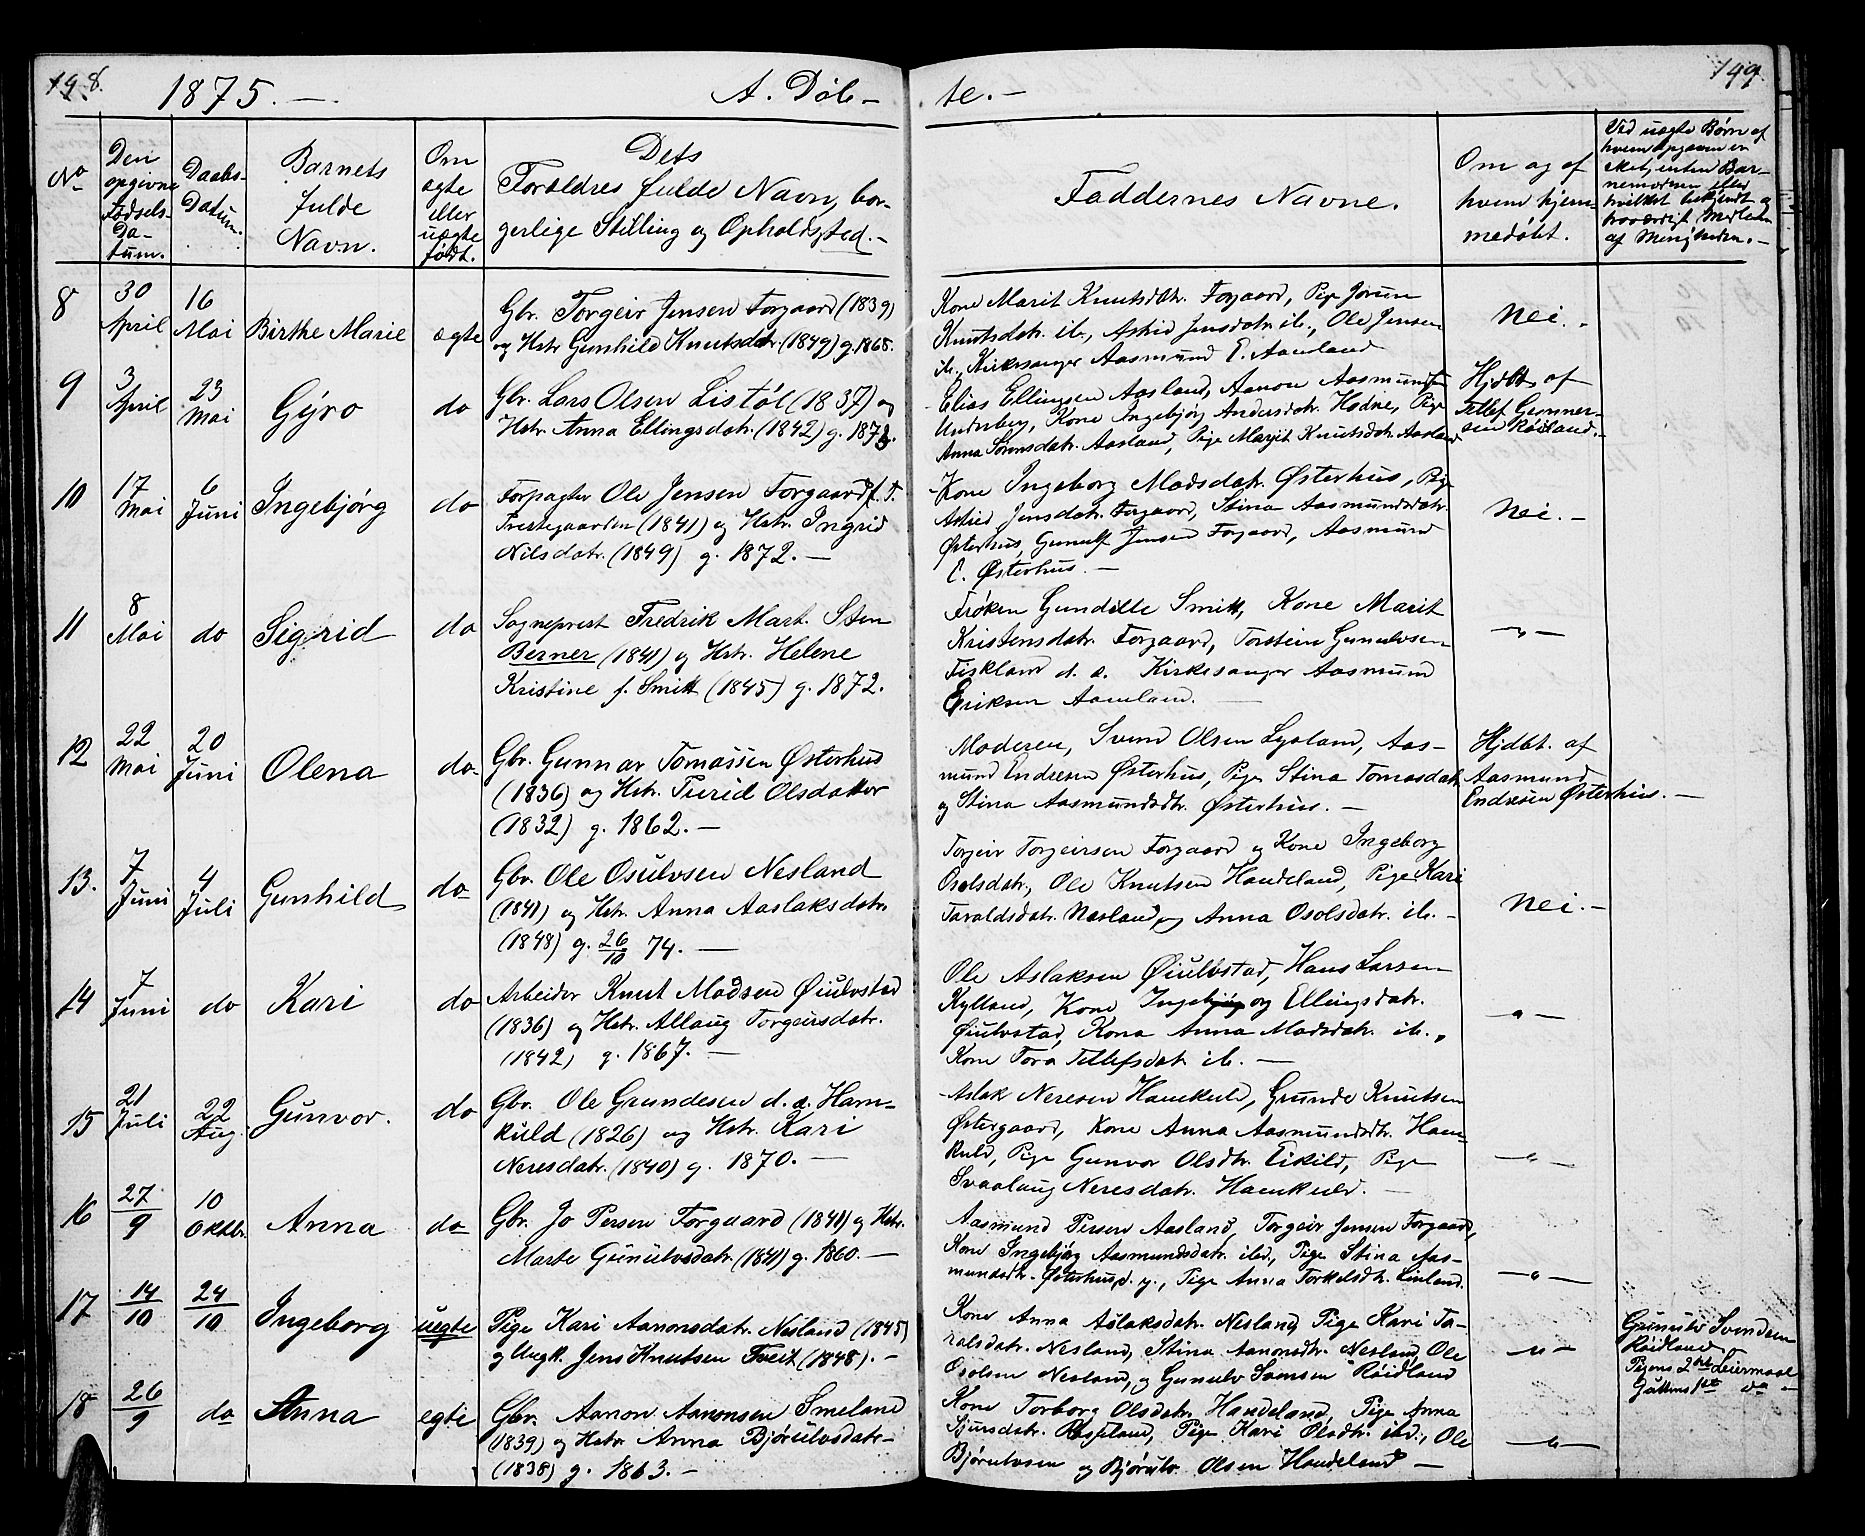 198.
1875. —
A. Døb-
te. —
199.
No
Den
opgivne
Fødsels-
Da-
tum.
Daabs-
Datum.
Barnets
fulde
Navn.
Om
ægte
eller
uægte
født.
Dets
Forældres fulde Navn, bor-
gerlige Stilling og Opholdsted. —
Faddernes Navne.
Om og af
hvem hjem-
medøbt.
Ved uægte Børn af
hvem Opgaven er
sket, enten Bar-
nemoderen eller
hvilket bekjendt og
troværdigt Medlem
af Menigheden. —
8
30
April
16
Mai
Birthe Marie
ægte
Gbr. Torgeir Jensen Forgaard (1839)
og Hstr. Gunhild Knutsdatr. (1849) g. 1868.
Kone Marit Knutsdtr. Forgaard, Pige Jorun
Knutsdatr. ib., Astrid Jensdatr. ib., Ole Jensen
ib., Kirkesanger Aasmund E. Aamland
Nei. -
9
3
April
23
Mai
Gyro
do
Gbr. Lars Olsen Listøl (1837) og
Hstr. Anna Ellingsdatr. (1842) g. 1873.
Elias Ellingsen Aasland, Aanon Aasmundsen
Underberg, Kone Ingebjørg Andersdatr. Hodne, Pige
Anna Sørensdatr. Aasland, Pige Margit Knutsdatr. Aasland
Hjdbt. af
Tellef Gunner-
sen Røisland. -
10
17
Mai
6
Juni
Ingebjørg
do
Forpagter Ole Jensen Forgaard f. T.
Prestegaarden (1841) og Hstr. Ingrid
Nilsdatr. (1849) g. 1872. —
Kone Ingeborg Madsdatr. Østerhus, Pige
Astrid Jensdatr. Forgaard, Stina Aasmundsdatr.
Østerhus, Gunulf Jensen Forgaard, Aasmund
E. Østerhus. —
Nei. -
11
8
Mai
do
Sigrid
do
Sogneprest Fredrik Mart. Sten
Berner (1841) og Hstr. Helene
Kristine f. Smitt (1845) g. 1872.
Frøken Gundelle Smitt, Kone Marit
Kristensdatr. Forgaard, Torstein Gunulvsen
Fiskland d. æ. Kirkesanger Aasmund
Eriksen Aamland. —
— " —
12
22
Mai
20
Juni
Olena
do
Gbr. Gunnar Tomassen Østerhus
(1836) og Hstr. Turid Olsdatter
(1832) g. 1862. —
Moderen, Svend Olsen Lysland, Aas-
mund Endresen Østerhus, Pige Stina Tomasdatr.
og Stina Aasmundsdtr. Østerhus. —
Hjdbt. af
Aasmund
Endresen Østerhus. —
13.
7
Juni
4
Juli
Gunhild
do
Gbr. Ole Osulvsen Nesland
(1841) og Hstr. Anna Aaslaksdatr.
(1848) g. 26/10 74. —
Torgeir Torgeirsen Forgaard og Kone Ingeborg
Osolsdatr., Ole Knutsen Haudeland, Pige Kari
Taraldsdatr. Nesland, og Anna Osolsdatr. ib. -
Nei. -
14
7
Juni
do
Kari
do
Arbeider Knut Madsen Øiulvstad
(1836) og Hstr. Allaug Torgeirsdatr.
(1842) g. 1867. —
Ole Aslaksen Øiulvstad, Hans Larsen
Kylland, Kone Ingebjørg Ellingsdatr.
Øiulvstad, Kone Anna Madsdatr. ib.,
Kone Tora Tellefsdatr ib. —
— " —
15
21
Juli
22
Aug.
Gunvor.
do
Gbr. Ole Grundesen d. æ. Ham-
kuld (1826) og Hstr. Kari
Neresdatr. (1840) g. 1870. —
Aslak Neresen Hamkuld, Grunde Knutsen
Østergaard, Kone Anna Aasmundsdtr. Ham-
kuld, Pige Gunvor Olsdtr. Eikild, Pige
Svaalaug Neresdatr. Hamkuld. —
— " —
16
27/9
10
Oktbr.
Anna
do
Gbr. Jo Persen Forgaard (1841) og Hstr.
Marte Gunulvsdatr. (1841) g. 1860. —
Aasmund Persen Aasland, Torgeir Jensen Forgaard,
Kone Ingebjørg Aasmundsdatr. ibd., Pige Stina Aas-
mundsdtr. Østerhus d. y., Pige Anna Torkelsdtr. Linland.
— " —
17
14/10
24/10
Ingeborg
uegte
Pige Kari Aanonsdatr. Nesland (1845)
og Ungk. Jens Knutsen Tveit (1848). —
Kone Anna Aslaksdatr. Nesland, Pige Kari Ta-
ralsdatr. Nesland, Stina Aanonsdtr. Nesland, Ole
Osolsen Nesland, og Gunulv Svensen Røidland
— " —
Gunulv Svendsen
Røidland
Pigens 2det Leiermaal
Guttens 1ste do —
18
26/9
do
Anna
egte
Gbr. Aanon Aanonsen Smeland
(1839) og Hstr. Anna Bjørulvsdatr.
(1838) g. 1863. —
Kone Torborg Olsdatr. Haudeland, Pige Anna
Sjursdatr. Røiseland, Pige Kari Olsdtr. ibd., Ole
Bjørulvsen og Bjørulv Olsen Haudeland —
— " —